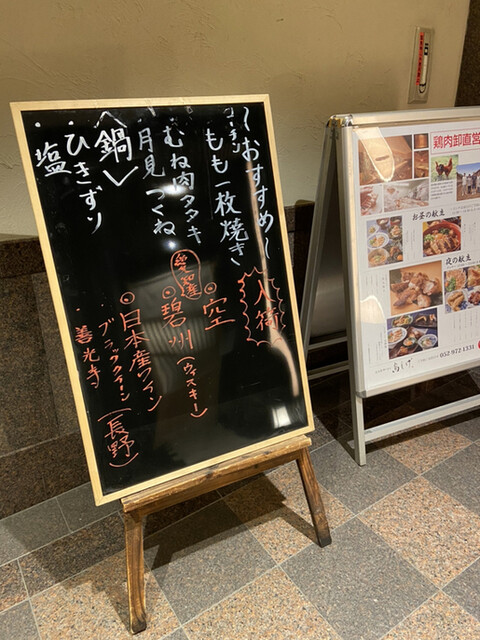 ~おすすめ~
コーチン もも一枚焼き
むね肉タタキ
月見つくね
<鍋>
・ひきずり
・塩
入荷
◎空
愛知産
◎碧州(ウィスキー)
◎日本産ワイン
ブラッククイーン(長野)
・善光寺
鶏肉卸直営
お昼の献立
夜の献立
052-972-1331